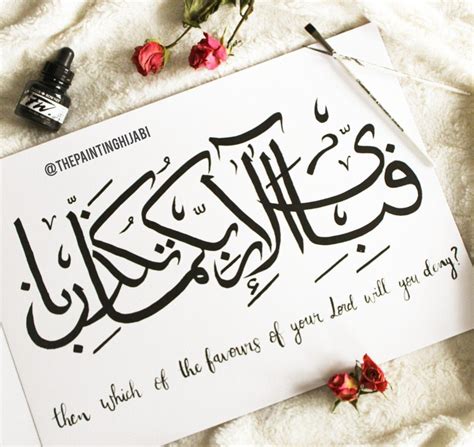 @THEPAINTINGHIJABI
فبأيّ آلاء ربّكما تكذّبان
then which of the favours of your Lord will you deny?